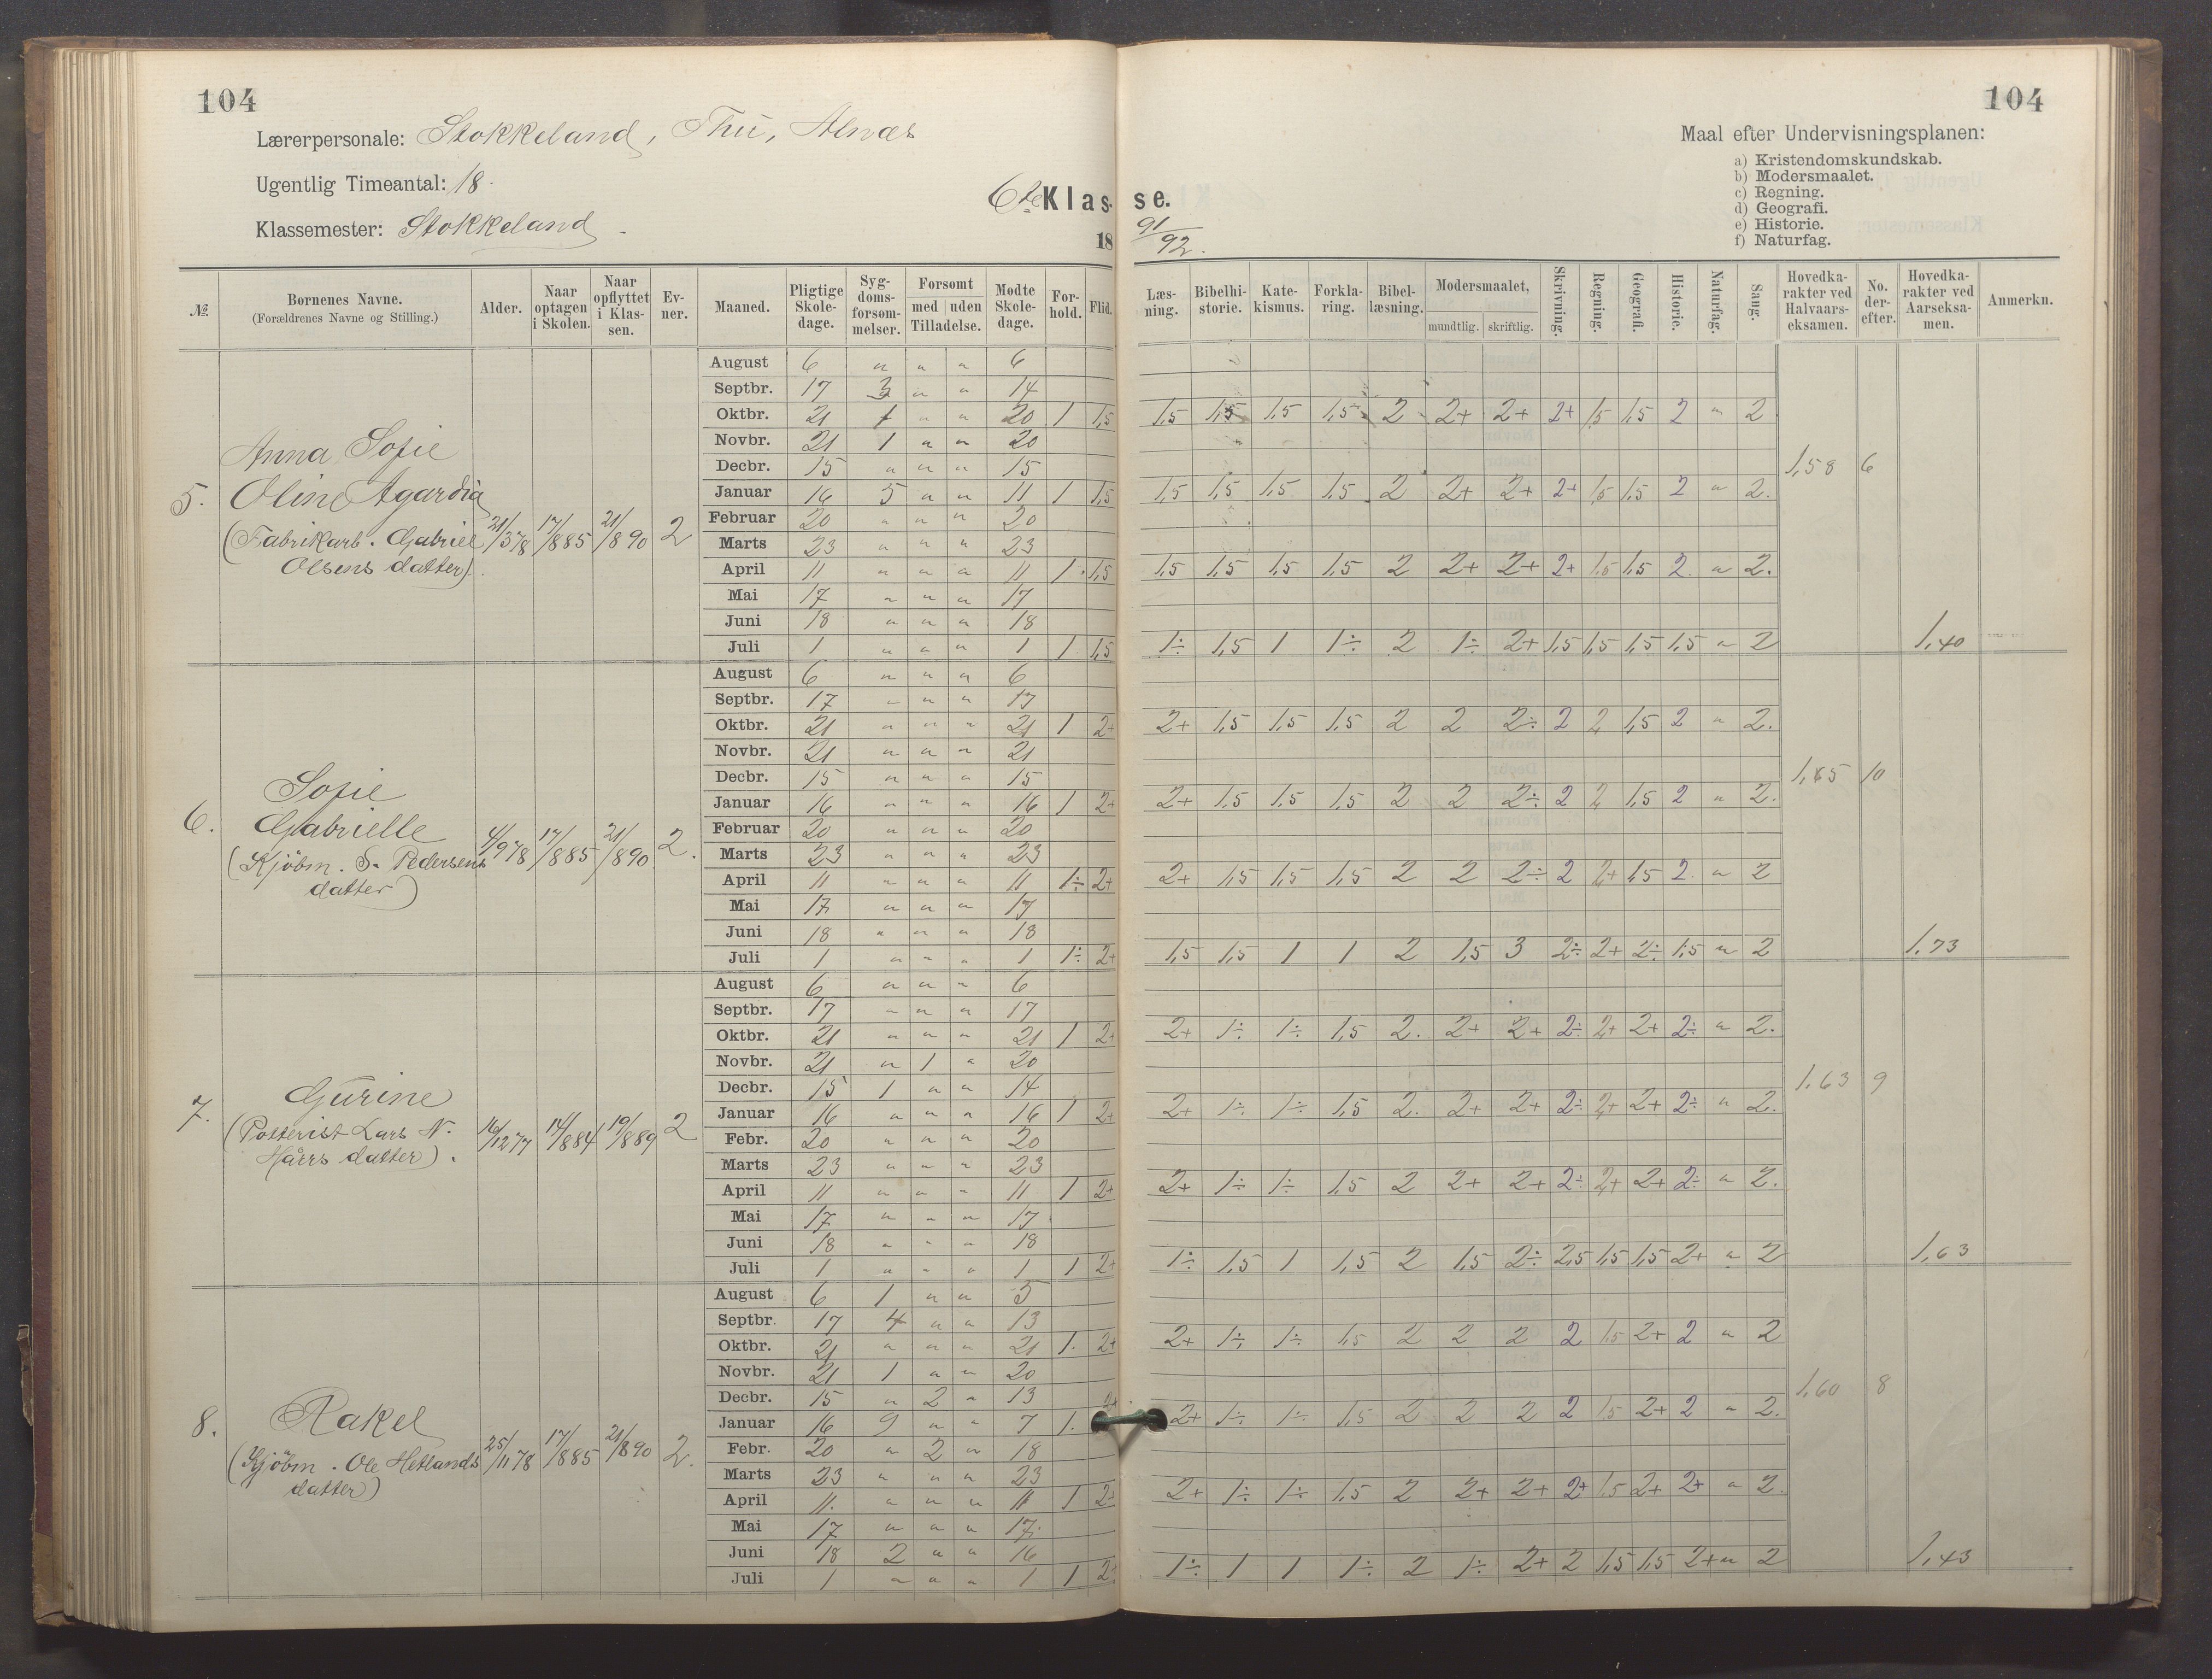 104
104
Lærerpersonale: Stokkeland, Thu, Alnæs
Ugentlig Timeantal: 18.
Klassemester: Stokkeland
6te Klasse.
18 91/92.
Maal efter Undervisningsplanen:
a) Kristendomskundskab.
b) Modersmaalet.
c) Regning.
d) Geografi.
e) Historie.
f) Naturfag.
№ | Børnenes Navne. (Forældrenes Navne og Stilling.) | Alder. | Naar optagen i Skolen. | Naar opflyttet i Klassen. | Evner. | Maaned. | Pligtige Skoledage. | Sygdomsforsømmelser. | Forsømt med / uden Tilladelse. | Mødte Skoledage. | Forhold. | Flid. | Læsning. | Bibelhistorie. | Katekismus. | Forklaring. | Bibellæsning. | Modersmaalet, mundtlig. skriftlig. | Skrivning. | Regning. | Geografi. | Historie. | Naturfag. | Sang. | Hovedkarakter ved Halvaarseksamen. | No. derefter. | Hovedkarakter ved Aarseksamen. | Anmerkn.
5. Anna Sofie
Oline Agardia
(Fabrikarb. Gabriel
Olsens datter).
21/3 78 17/8 85 21/8 90 2
August 6 " " " 6
Septbr. 17 3 " " 14
Oktbr. 21 1 " " 20 1 1,5 1,5 1,5 1,5 1,5 2 2+ 2+ 2+ 1,5 1,5 2 " 2
Novbr. 21 1 " " 20
Decbr. 15 " " " 15 1,58 6
Januar 16 5 " " 11 1 1,5 1,5 1,5 1,5 1,5 2 2+ 2+ 2+ 1,5 1,5 2 " 2.
Februar 20 " " " 20
Marts 23 " " " 23
April 11 " " " 11 1 1,5 1,5 1,5 1,5 1,5 2 2+ 2+ 2+ 1,5 1,5 2. " 2.
Mai 17 " " " 17
Juni 18 " " " 18
Juli 1 " " " 1 1 1,5 1÷ 1,5 1 1÷ 2 1÷ 2+ 1,5 1,5 1,5 1,5 " 2 1,40
6. Sofie
Gabrielle
(Kjöbm. S. Pedersens
datter)
4/9 78 17/8 85 21/8 90 2.
August 6 " " " 6
Septbr. 17 " " " 17
Oktbr. 21 " " " 21 1 2+ 2+ 1,5 1,5 1,5 2 2 2÷ 2 2 1,5 2 " 2.
Novbr. 21 " " " 21
Decbr. 15 " " " 15 1,65 10
Januar 16 " " " 16 1 2+ 2+ 1,5 1,5 1,5 2 2 2÷ 2 2 1,5 2 " 2.
Februar 20 " " " 20
Marts 23 " " " 23
April 11 " " " 11 1÷ 2+ 2+ 1,5 1,5 1,5 2 2 2÷ 2 2+ 1,5 2. " 2
Mai 17 " " " 17
Juni 18 " " " 18
Juli 1 " " " 1 1÷ 2+ 1,5 1,5 1 1 2 1,5 3 2÷ 2+ 2÷ 1,5 " 2 1,73
7. Gurine
(Potterist Lars N.
Hårrs datter).
16/12 77 14/8 84 19/8 89 2
August 6 " " " 6
Septbr. 17 " " " 17
Oktbr. 21 " " " 21 1 2+ 2+ 1÷ 1÷ 1,5 2. 2+ 2+ 2÷ 2+ 2+ 2÷ " 2.
Novbr. 21 " 1 " 20
Decbr. 15 1 " " 14 1,63 9
Januar 16 " " " 16 1 2+ 2+ 1÷ 1÷ 1,5 2. 2+ 2+ 2÷ 2+ 2+ 2÷ " 2.
Febr. 20 " " " 20
Marts 23 " " " 23
April 11 " " " 11 1 2+ 2+ 1÷ 1÷ 1,5 2 2+ 2+ 2÷ 2+ 2+ 2÷ " 2.
Mai 17 " " " 17
Juni 18 " " " 18
Juli 1 " " " 1 1 2+ 1÷ 1,5 1 1,5 2 1,5 2÷ 2,5 1,5 1,5 2+ " 2 1,63
8. Rakel
(Kjöbm. Ole Hetlands
datter)
25/11 78 17/8 85 21/8 90 2.
August 6 1 " " 5
Septbr. 17 4 " " 13
Oktbr. 21 " " " 21 1. 2+ 2+ 1÷ 1÷ 1,5 2 2 2 2 1,5 2+ 2 " 2
Novbr. 21 1 " " 20
Decbr. 15 " 2 " 13 1,60 8
Januar 16 9 " " 7 1. 2+ 2+ 1÷ 1÷ 1,5 2 2 2 2 1,5 2+ 2 " 2.
Febr. 20 " 2 " 18
Marts 23 " " " 23
April 11. " " " 11 1 2+ 2+ 1÷ 1÷ 1,5 2 2+ 2+ 2+ 1,5 2+ 2+ " 2.
Mai 17 " " " 17.
Juni 18 2 " " 16
Juli 1 " " " 1 1 2+ 1÷ 1 1 1÷ 2 1÷ 2+ 2 1,5 1,5 2+ " 2 1,43